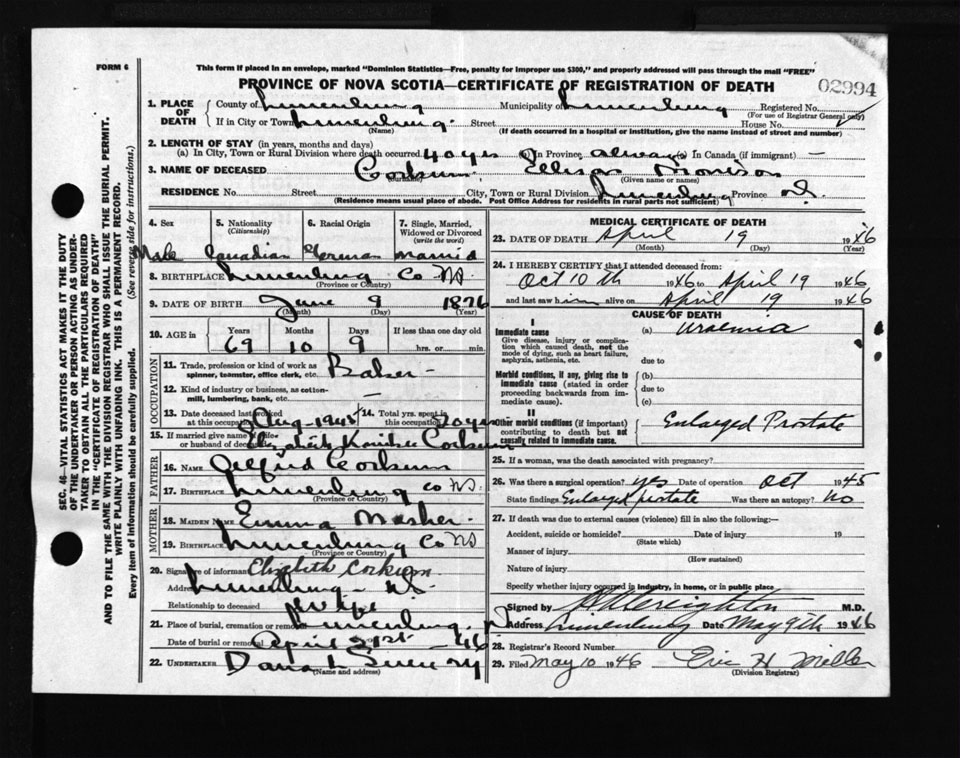 FORM 6
This form if placed in an envelope, marked "Dominion Statistics—Free, penalty for improper use $300," and properly addressed will pass through the mail "FREE"
PROVINCE OF NOVA SCOTIA—CERTIFICATE OF REGISTRATION OF DEATH
02994
1. PLACE OF DEATH County of Lunenburg Municipality of Lunenburg Registered No.
(For use of Registrar General only)
If in City or Town Lunenburg Street House No.
(Name) (If death occurred in a hospital or institution, give the name instead of street and number)
2. LENGTH OF STAY (in years, months and days)
(a) In City, Town or Rural Division where death occurred 40 yrs (b) In Province always (c) In Canada (if immigrant) —
3. NAME OF DECEASED Corkum Ellison Morrison
(Surname) (Given name or names)
RESIDENCE No. Street City, Town or Rural Division Lunenburg Province N.S.
(Residence means usual place of abode. Post Office Address for residents in rural parts not sufficient)
4. Sex 5. Nationality (Citizenship) 6. Racial Origin 7. Single, Married, Widowed or Divorced (write the word)
Male Canadian German Married
8. BIRTHPLACE Lunenburg Co NS
(Province or Country)
9. DATE OF BIRTH June 9 1876
(Month) (Day) (Year)
10. AGE in Years Months Days If less than one day old
69 10 9 hrs. or min.
OCCUPATION
11. Trade, profession or kind of work as spinner, teamster, office clerk, etc. Baker
12. Kind of industry or business, as cotton-mill, lumbering, bank, etc.
13. Date deceased last worked at this occupation Aug 1945 14. Total yrs. spent in this occupation 20 yrs
15. If married give name of wife or husband of deceased Elizabeth Corkum
FATHER
16. NAME Alfrid Corkum
17. BIRTHPLACE Lunenburg Co NS.
(Province or Country)
MOTHER
18. MAIDEN NAME Emma Mosher
19. BIRTHPLACE Lunenburg Co NS
(Province or Country)
20. Signature of informant Elizabeth Corkum
Address Lunenburg - NS.
Relationship to deceased Wife
21. Place of burial, cremation or removal Lunenburg
Date of burial or removal April 21st - 46
22. UNDERTAKER
(Name and address)
MEDICAL CERTIFICATE OF DEATH
23. DATE OF DEATH April 19 1946
(Month) (Day) (Year)
24. I HEREBY CERTIFY that I attended deceased from:
Oct 10th 1946 to April 19 1946
and last saw him alive on April 19 1946
CAUSE OF DEATH
I
Immediate cause (a) Uraemia
Give disease, injury or complication which caused death, not the mode of dying, such as heart failure, asphyxia, asthenia, etc.
due to
Morbid conditions, if any, giving rise to immediate cause (stated in order proceeding backwards from immediate cause)
(b)
due to
(c)
II
Other morbid conditions (if important) contributing to death but not causally related to immediate cause. Enlarged Prostate
25. If a woman, was the death associated with pregnancy?
26. Was there a surgical operation? yes Date of operation Oct 1945
State findings Enlarged prostate Was there an autopsy? No
27. If death was due to external causes (violence) fill in also the following:—
Accident, suicide or homicide? Date of injury 19
(State which)
Manner of injury
(How sustained)
Nature of injury
Specify whether injury occured in industry, in home, or in public place
Signed by Creighton M.D.
Address Lunenburg Date May 9th 1946
28. Registrar's Record Number
29. Filed May 10 1946 Eric H Miller
(Division Registrar)
SEC. 46—VITAL STATISTICS ACT MAKES IT THE DUTY
OF THE UNDERTAKER OR PERSON ACTING AS UNDER-
TAKER TO OBTAIN ALL THE PARTICULARS REQUIRED
IN THE "CERTIFICATE OF REGISTRATION OF DEATH"
AND TO FILE THE SAME WITH THE DIVISION REGISTRAR WHO SHALL ISSUE THE BURIAL PERMIT.
WRITE PLAINLY WITH UNFADING INK. THIS IS A PERMANENT RECORD.
Every item of information should be carefully supplied. (See reverse side for instructions.)